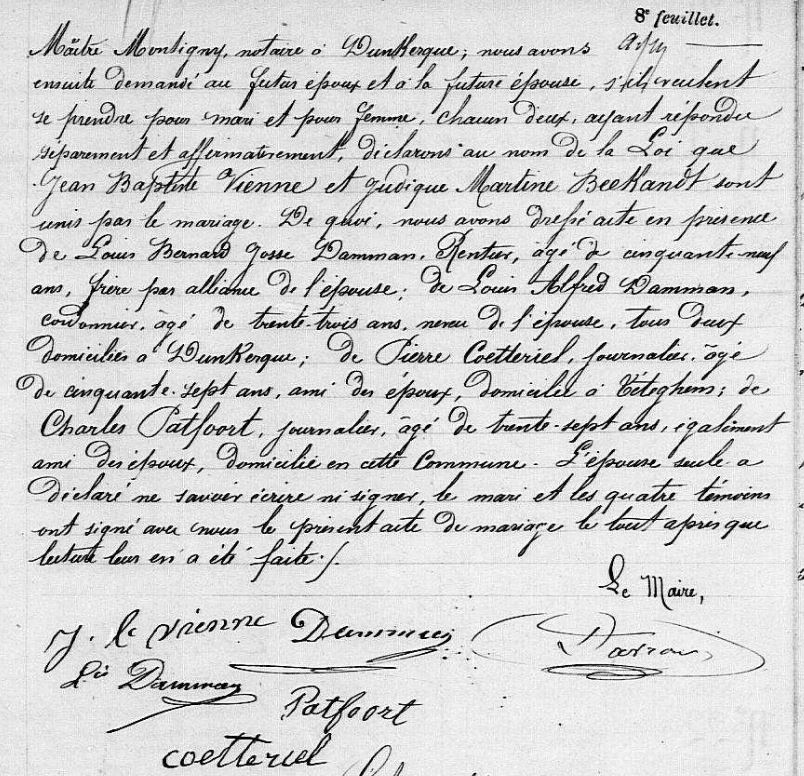 8e feuillet.
Maître Montigny, notaire à Dunkerque; nous avons
ensuite demandé au futur époux et à la future épouse, s'ils veulent
se prendre pour mari et pour femme, chacun d'eux, ayant répondu
séparement et affirmativement, déclarons au nom de la Loi que
Jean Baptiste Vienne et Judique Martine Beekandt sont
unis par le mariage. De quoi, nous avons dressé acte en présence
de Louis Bernard Josse Damman, Rentier, âgé de cinquante-neuf
ans, frère par alliance de l'épouse; de Louis Alfred Damman,
cordonnier, âgé de trente-trois ans, neveu de l'épouse, tous deux
domiciliés à Dunkerque; de Pierre Coetteriel, journalier, âgé
de cinquante-sept ans, ami des époux, domicilié à Téteghem; de
Charles Patfoort, journalier, âgé de trente-sept ans, également
ami des époux, domicilié en cette Commune. L'épouse seule a
déclaré ne savoir écrire ni signer, le mari et les quatre témoins
ont signé avec nous le présent acte de mariage le tout après que
lecture leur en a été faite./.
Le Maire,
J. Bte Vienne Damman
Ls Damman
Patfoort
coetteriel